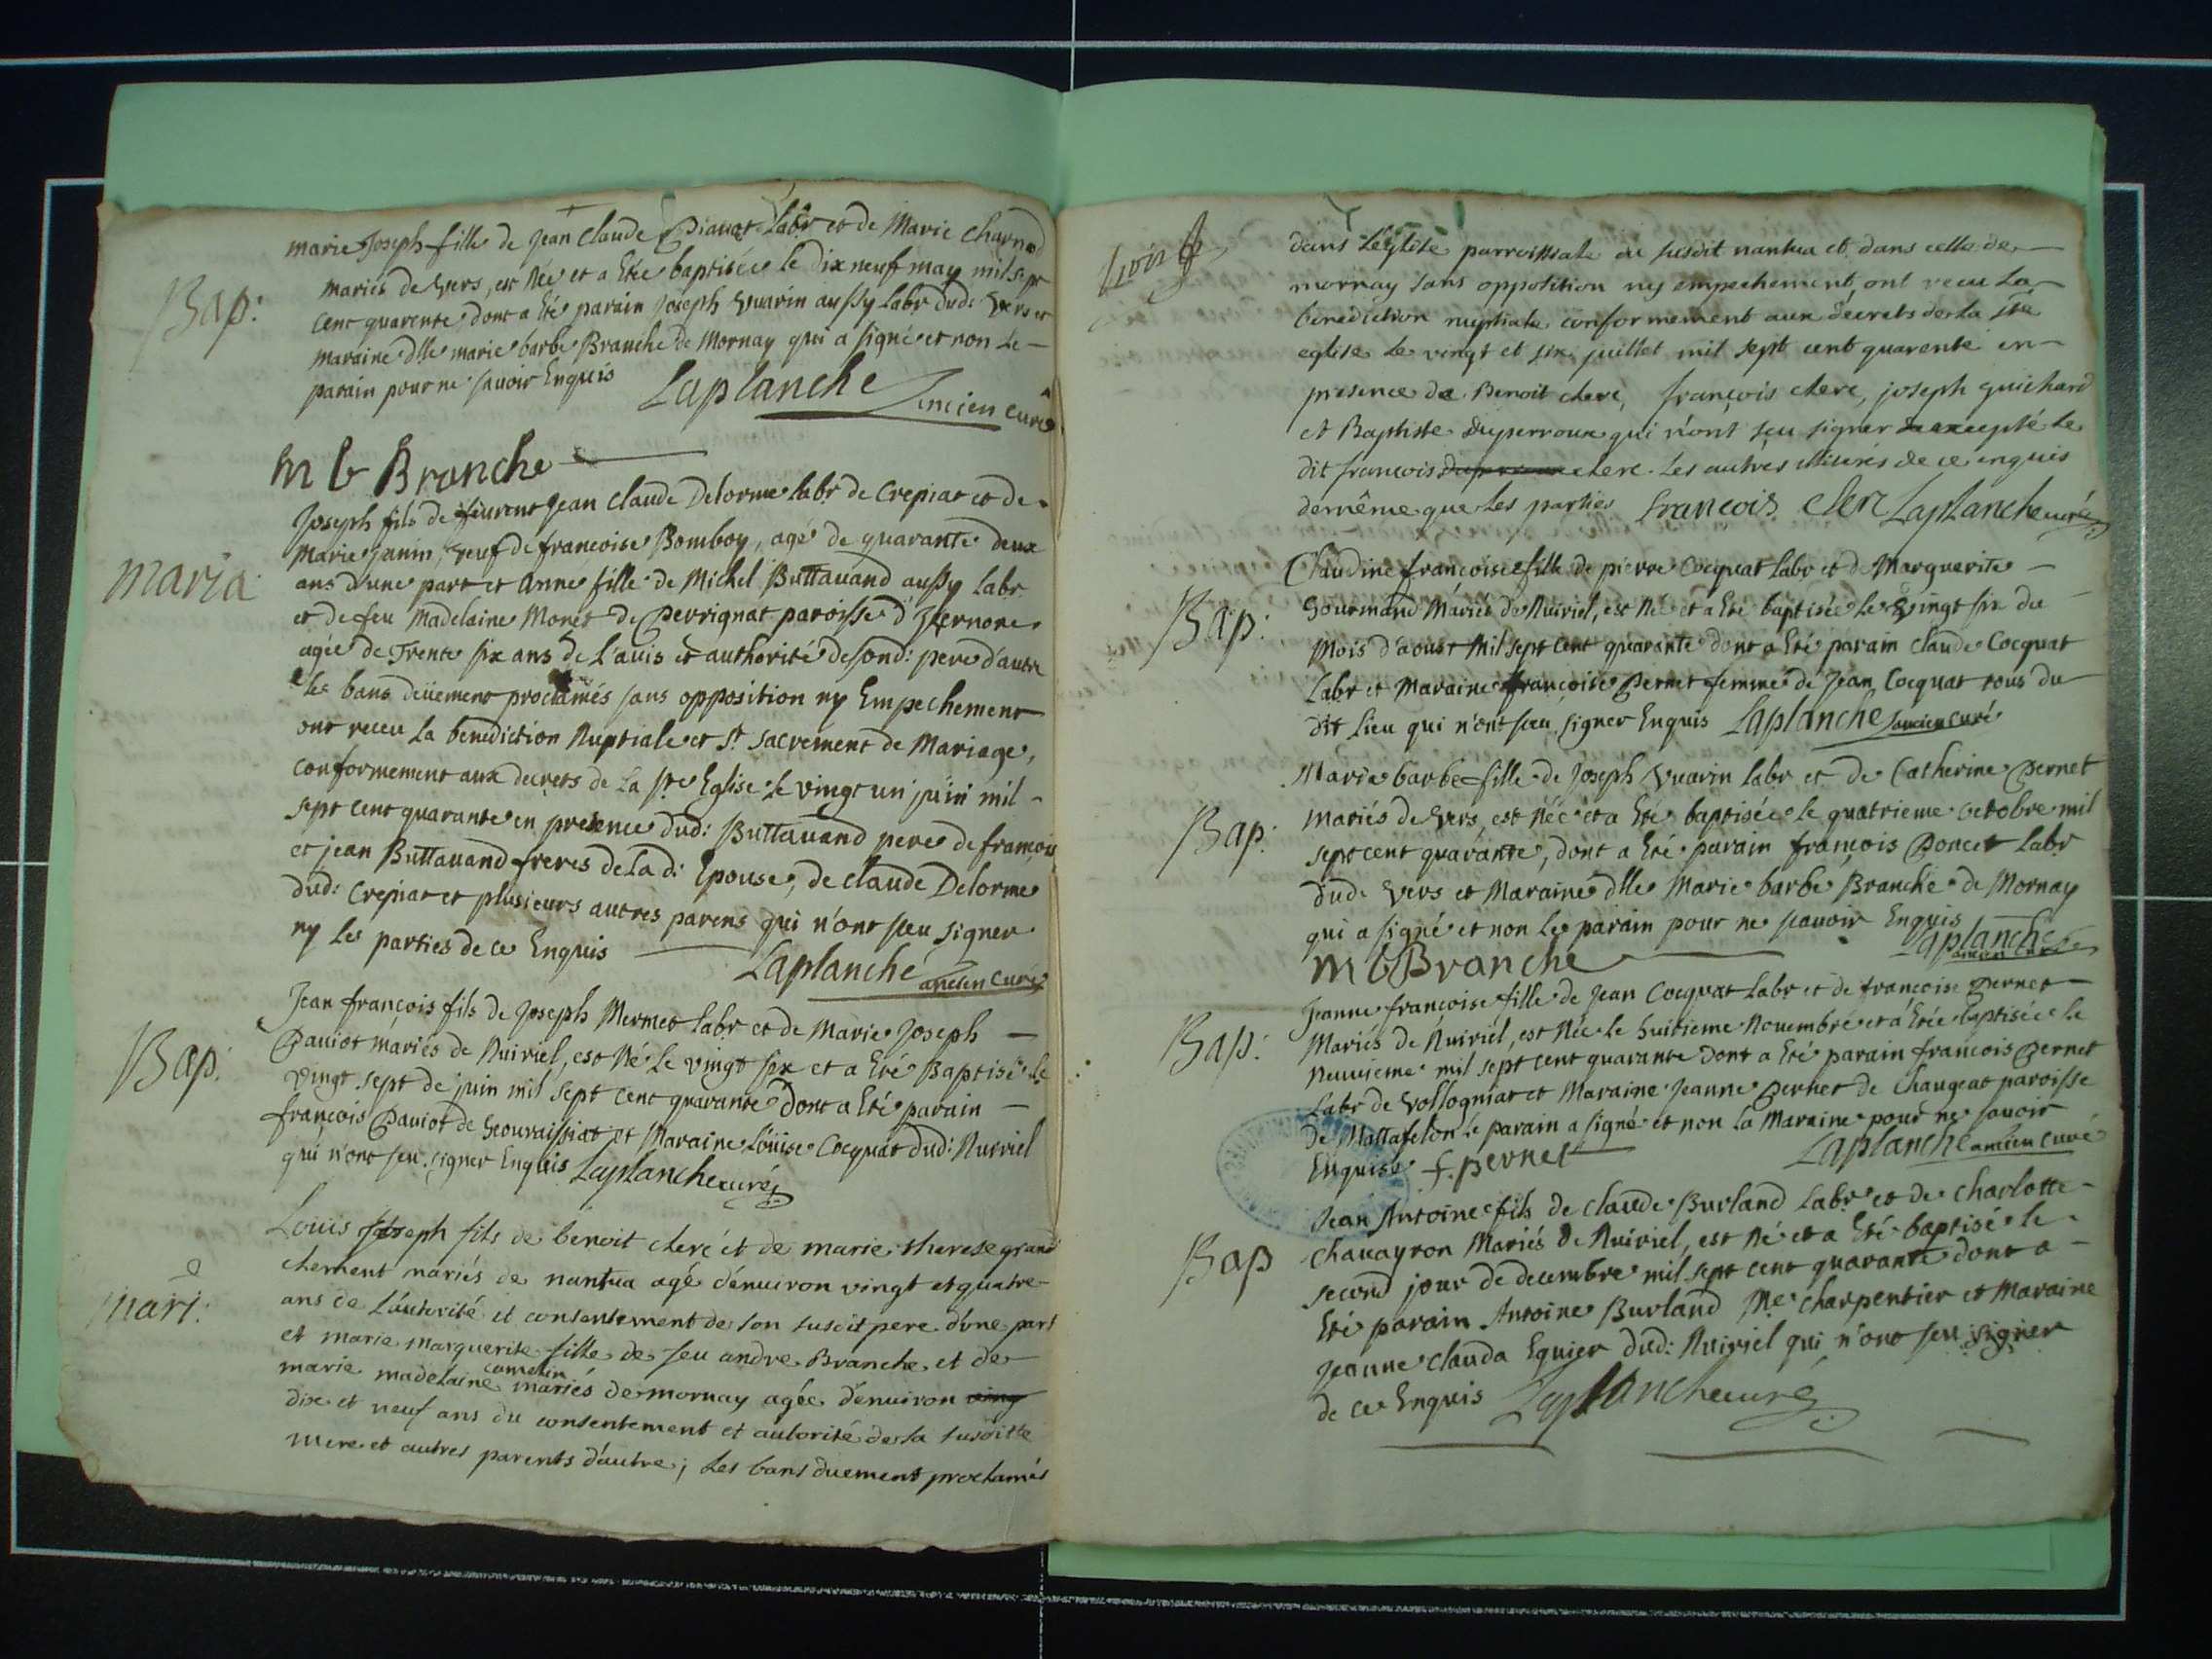 marie Joseph fille de Jean Claude Piauat labr et de Marie Charnod
Bap:
mariés de Vers, est Née et a Eté baptisée le dix neuf may mil sept
cent quarente, dont a Eté parain Joseph Vuarin aussy labr dud: Vers et
maraine dlle marie barbe Branche de Mornay qui a signé et non Le
parain pour ne savoir Enquis Laplanche ancien curé
m b Branche
Joseph fils de Jean Claude Delorme labr de Crepiat et de
maria
Marie Janin, veuf de francoise Bomboy, agé de quarante deux
ans d'une part et Anne fille de Michel Buttauand aussy labr
et de feu Madelaine Monet de Perrignat paroisse d'Yzernore
agée de Trente six ans de L'auis et authorité de sond: pere d'autre
les bans deüement proclamés sans opposition ny Empechement
ont receu la benediction Nuptiale et St sacrement de Mariage,
conformement aux decrets de La ste Eglise le vingt un juin mil
sept cent quarante en presence dud: Buttauand pere de francois
et jean Buttauand freres de La d: Epouse, de claude Delorme
dud: Crepiat et plusieurs autres parens qui n'ont sceu signer
ny les parties de ce Enquis
Laplanche ancien curé
Jean françois fils de Joseph Mermet labr et de Marie Joseph
Bap:
Pauiot mariés de Nuiriel, est Né le vingt six et a Eté Baptisé le
vingt sept de juin mil sept cent quarante dont a Eté parain
françois Pauiot de Geouraissiat et Maraine Loüise Cocquat dud: Nuiriel
qui n'ont seu signer Enquis Laplanche curé
Louis Joseph fils de benoit clerc et de marie therese grand
mari:
chement mariés de nantua agé d'enuiron vingt et quatre
ans de l'autorité et consentement de son susdit pere d'une part
et marie marguerite fille de feu andre Branche et de
marie madelaine camelin mariés de mornay agée d'enuiron ving
dix et neuf ans du consentement et autorité de la susditte
mere et autres parents d'autre; les bans duement proclamés
dans L'église parroissiale du susdit nantua et dans celle de
mornay sans opposition ny empechement, ont receu La
benediction nuptiale conformement aux décrets de la ste
eglise le vingt et six juillet mil sept cent quarente en
presence de Benoit clerc, françois clerc, joseph guichard
et Baptiste duperroux qui n'ont seu signer excepté le
dit francois clerc. les autres illiterés de ce enquis
de même que Les parties françois clerc Laplanche curé
Claudine françoise fille de pierre Cocquat labr et de Marguerite
Bap:
Gourmand Mariés de Nuiriel, est Née et a Eté baptisée le vingt six du
Mois d'aoust Mil sept cent quarante dont a Eté parain claude Cocquat
Labr et Maraine françoise Pernet femme de Jean Cocquat tous du
dit Lieu qui n'ont seeu signer Enquis Laplanche ancien curé
Marie barbe fille de Joseph Vuarin labr et de Catherine Pernet
Bap:
mariés de Vers, est Née et a Eté baptisée le quatrieme octobre mil
sept cent quarante, dont a Eté parain françois Poncet labr
dud: Vers et Maraine dlle Marie barbe Branche de Mornay
qui a signé et non Le parain pour ne sçauoir Enquis
m b Branche Laplanche ancien curé
Jeanne françoise fille de Jean Cocquat labr et de francoise Pernet
Bap:
Mariés de Nuiriel, est Née Le huitieme Nouembre et a Etée baptisée le
Neuuieme mil sept cent quarante dont a Eté parain francois Pernet
Labr de Vollogniat et Maraine Jeanne Pernet de Chaugeat paroisse
De Mattafelon le parain a signé et non la Maraine pour ne sauoir
Enquise f. pernet Laplanche ancien curé
Jean Antoine fils de claude Burland Labr et de Charlotte
Bap
Chauayron Mariés de Nuiriel, est Né et a Eté baptisé le
second jour de decembre mil sept cent quarante dont a
Eté parain Antoine Burland Me charpentier et Maraine
Jeanne clauda Equier dud: Nuiriel qui n'ont seu signer
de ce Enquis Laplanche curé